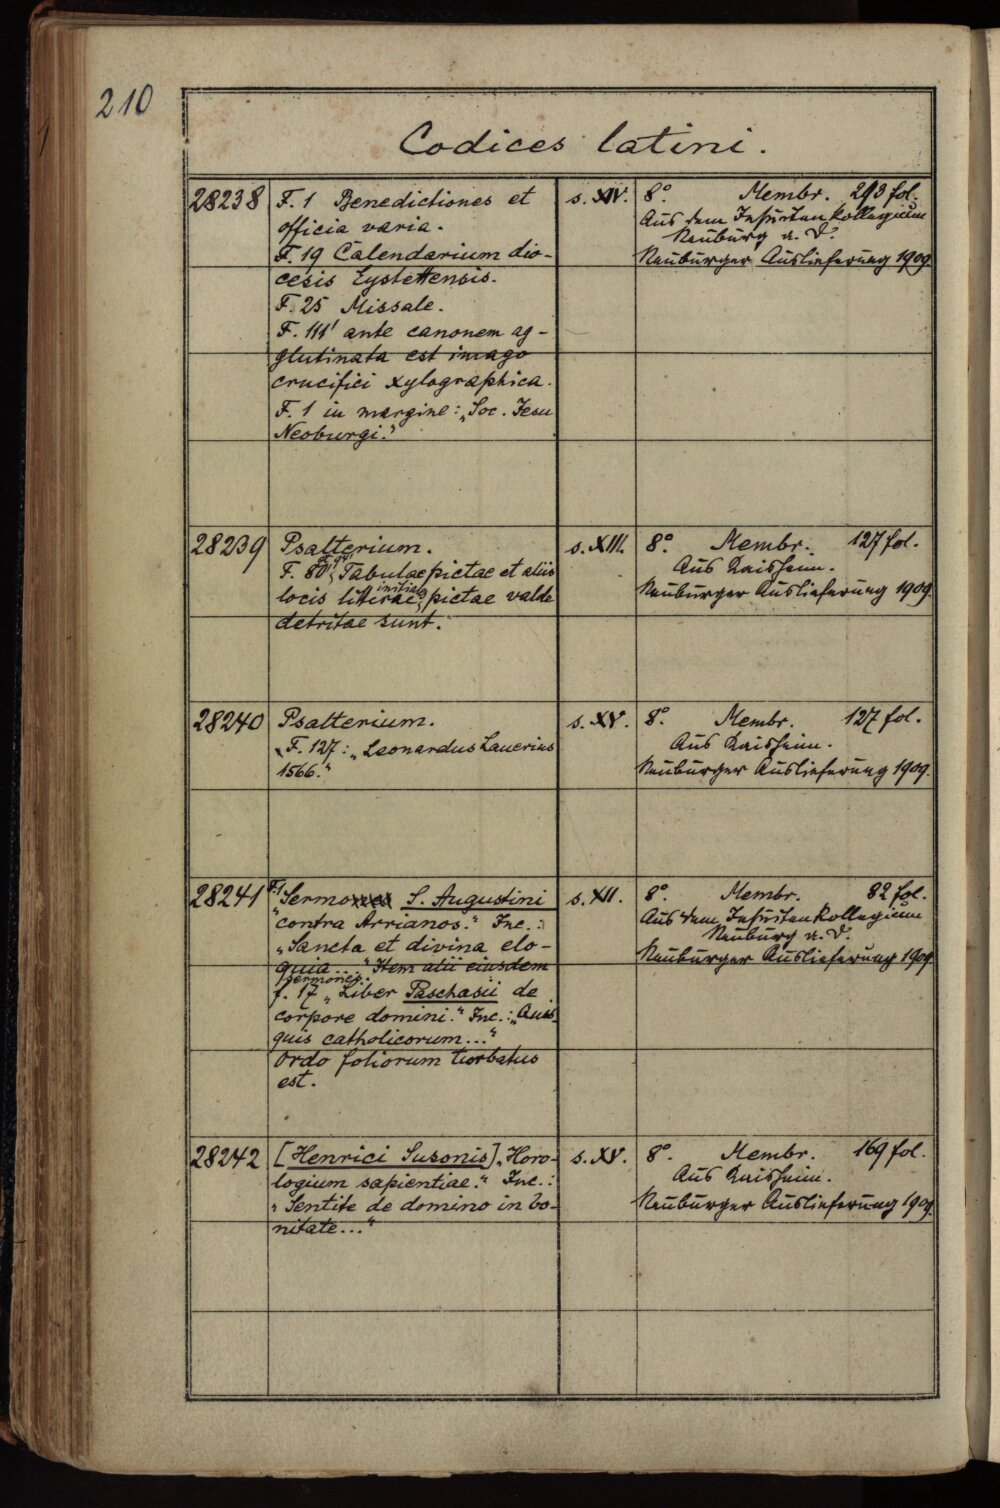 210
Codices latini.
28238 F. 1 Benedictiones et s. XIV. 8°. Membr. 213 fol.
officia varia. Aus dem Jesuitenkollegium
F. 19 Calendarium dio- Neuburg a. D.
cesis Eystettensis. Neuburger Auslieferung 1909.
F. 25 Missale.
F. 111' ante canonem ag-
glutinata est imago
crucifici xylographica.
F. 1 in margine: „Soc. Jesu
Neoburgi."
28239 Psalterium. s. XIII. 8°. Membr. 127 fol.
F. 80' Tabulae pictae et aliis Aus Kaisheim.
locis litterae initiales pictae valde Neuburger Auslieferung 1909.
detritae sunt.
28240 Psalterium. s. XV. 8°. Membr. 127 fol.
F. 127: „Leonardus Lauerius Aus Kaisheim.
1566." Neuburger Auslieferung 1909.
28241 F. 1 „Sermo S. Augustini s. XII. 8°. Membr. 82 fol.
contra Arrianos." Inc.: Aus dem Jesuitenkollegium
„Sancta et divina elo- Neuburg a. D.
quia..." Item alii eiusdem Neuburger Auslieferung 1909
sermones.
f. 17 „Liber Paschasii de
corpore domini." Inc.: „Quis-
quis catholicorum..."
Ordo foliorum turbatus
est.
28242 [Henrici Susonis] „Horo- s. XV. 8°. Membr. 169 fol.
logium sapientiae." Inc.: Aus Kaisheim.
„Sentite de domino in bo- Neuburger Auslieferung 1909.
nitate..."